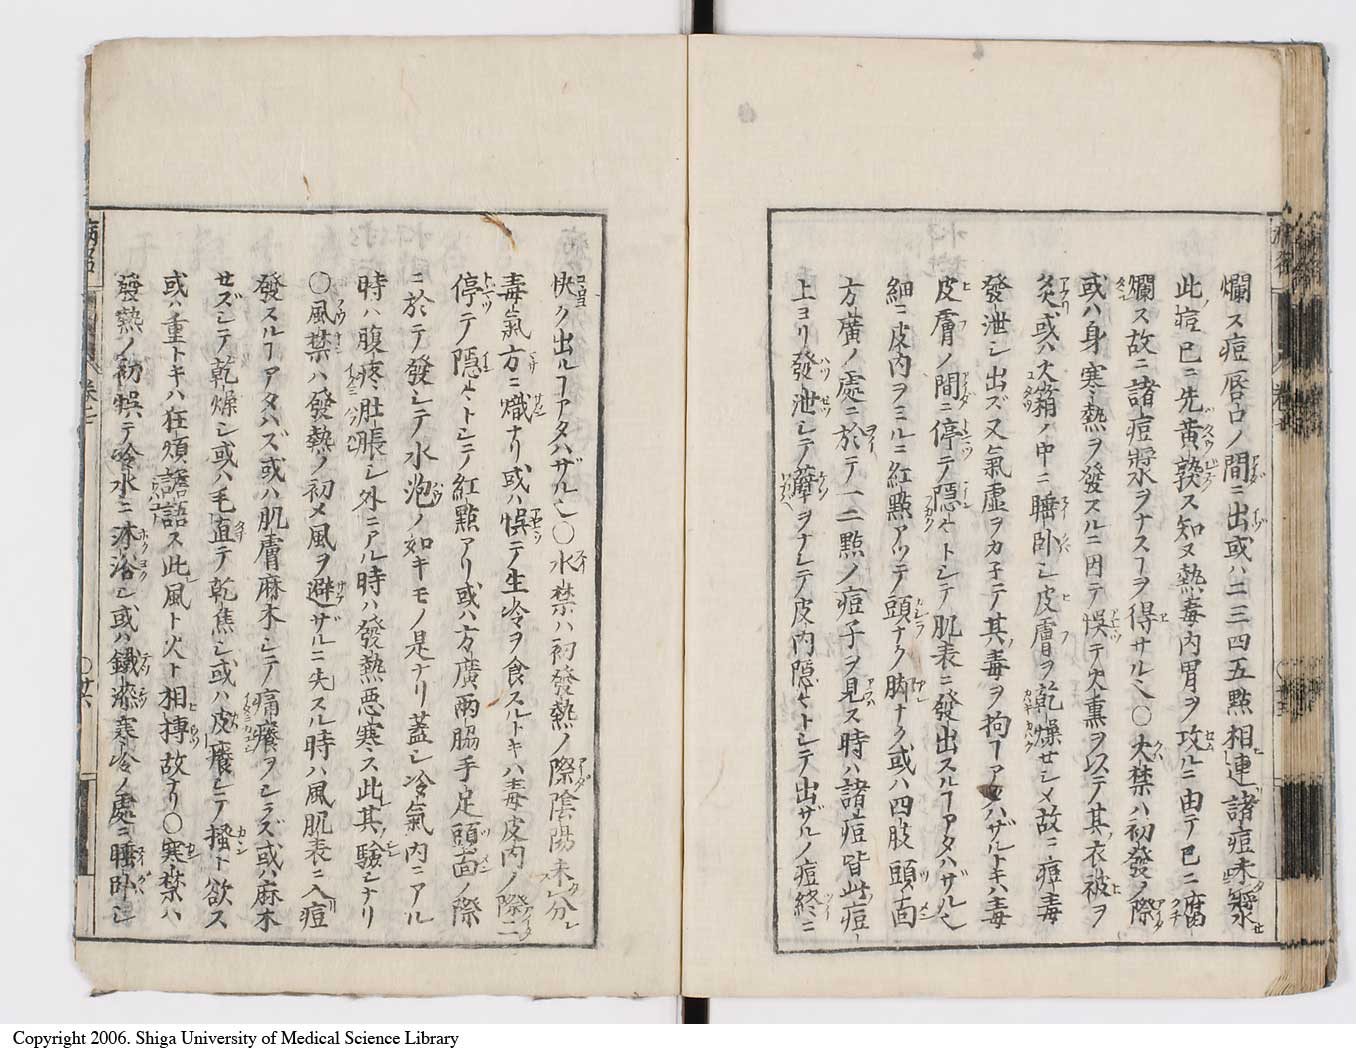 爛ス痘唇口ノ間ニ出或ハ二三四五點相連諸痘未膿
此痘已ニ先黄熟ス知ヌ熱毒内胃ヲ攻ルニ由テ已ニ腐
爛ス故ニ諸痘漿ヲナスヿヲ得サル也〇火禁ハ初發ノ際
或ハ身寒熱ヲ發スルニ因テ悞テ火薫ヲ以テ其衣被ヲ
炙或ハ火箱ノ中ニ睡卧シ皮膚ヲ乾燥セシメ故ニ痘毒
發泄シ出ズ又氣虚ヲカ子テ其毒ヲ拘ヿアタハザルトキハ毒
皮膚ノ間ニ停テ隠〻トシテ肌表ニ發出スルヿアタハザル也
細ニ皮内ヲミルニ紅點アツテ頭ナク脚ナク或ハ四肢頭面
方廣ノ處ニ於テ一二點ノ痘子ヲ見ス時ハ諸痘皆此痘
上ヨリ發泄シテ癬ヲナシテ皮内隠〻トシテ出ザルノ痘終ニ
快ク出ルヿアタハザル也〇水禁ハ初發熱ノ際陰陽未分
毒氣方ニ熾ナリ或ハ悞テ生冷ヲ食スルトキハ毒皮内ノ際ニ
停テ隠〻トシテ紅點アリ或ハ方廣兩脇手足頭面ノ際
ニ於テ發シテ水泡ノ如キモノ是ナリ蓋シ冷氣内ニアル
時ハ腹疼肚脹シ外ニアル時ハ發熱悪寒ス此其驗ナリ
〇風禁ハ發熱ノ初メ風ヲ避ザルニ失スル時ハ風肌表ニ入痘
發スルヿアタハズ或ハ肌膚麻木シテ痛癢ヲシラズ或ハ麻木
セズシテ乾燥シ或ハ毛直テ乾焦シ或ハ皮癢シテ搔ト欲ス
或ハ重トキハ狂煩譫語ス此風ト火ト相摶故ナリ〇寒禁ハ
發熱ノ初悞テ冷水ニ沐浴シ或ハ鐵漆寒冷ノ處ニ睡卧シ
卷七
〇廿六
Copyright 2006. Shiga University of Medical Science Library